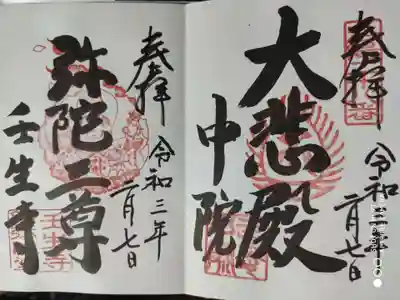 奉拝
令和三年
二月七日
大悲殿
中院
奉拝
令和三年
二月七日
弥陀三尊
壬生寺